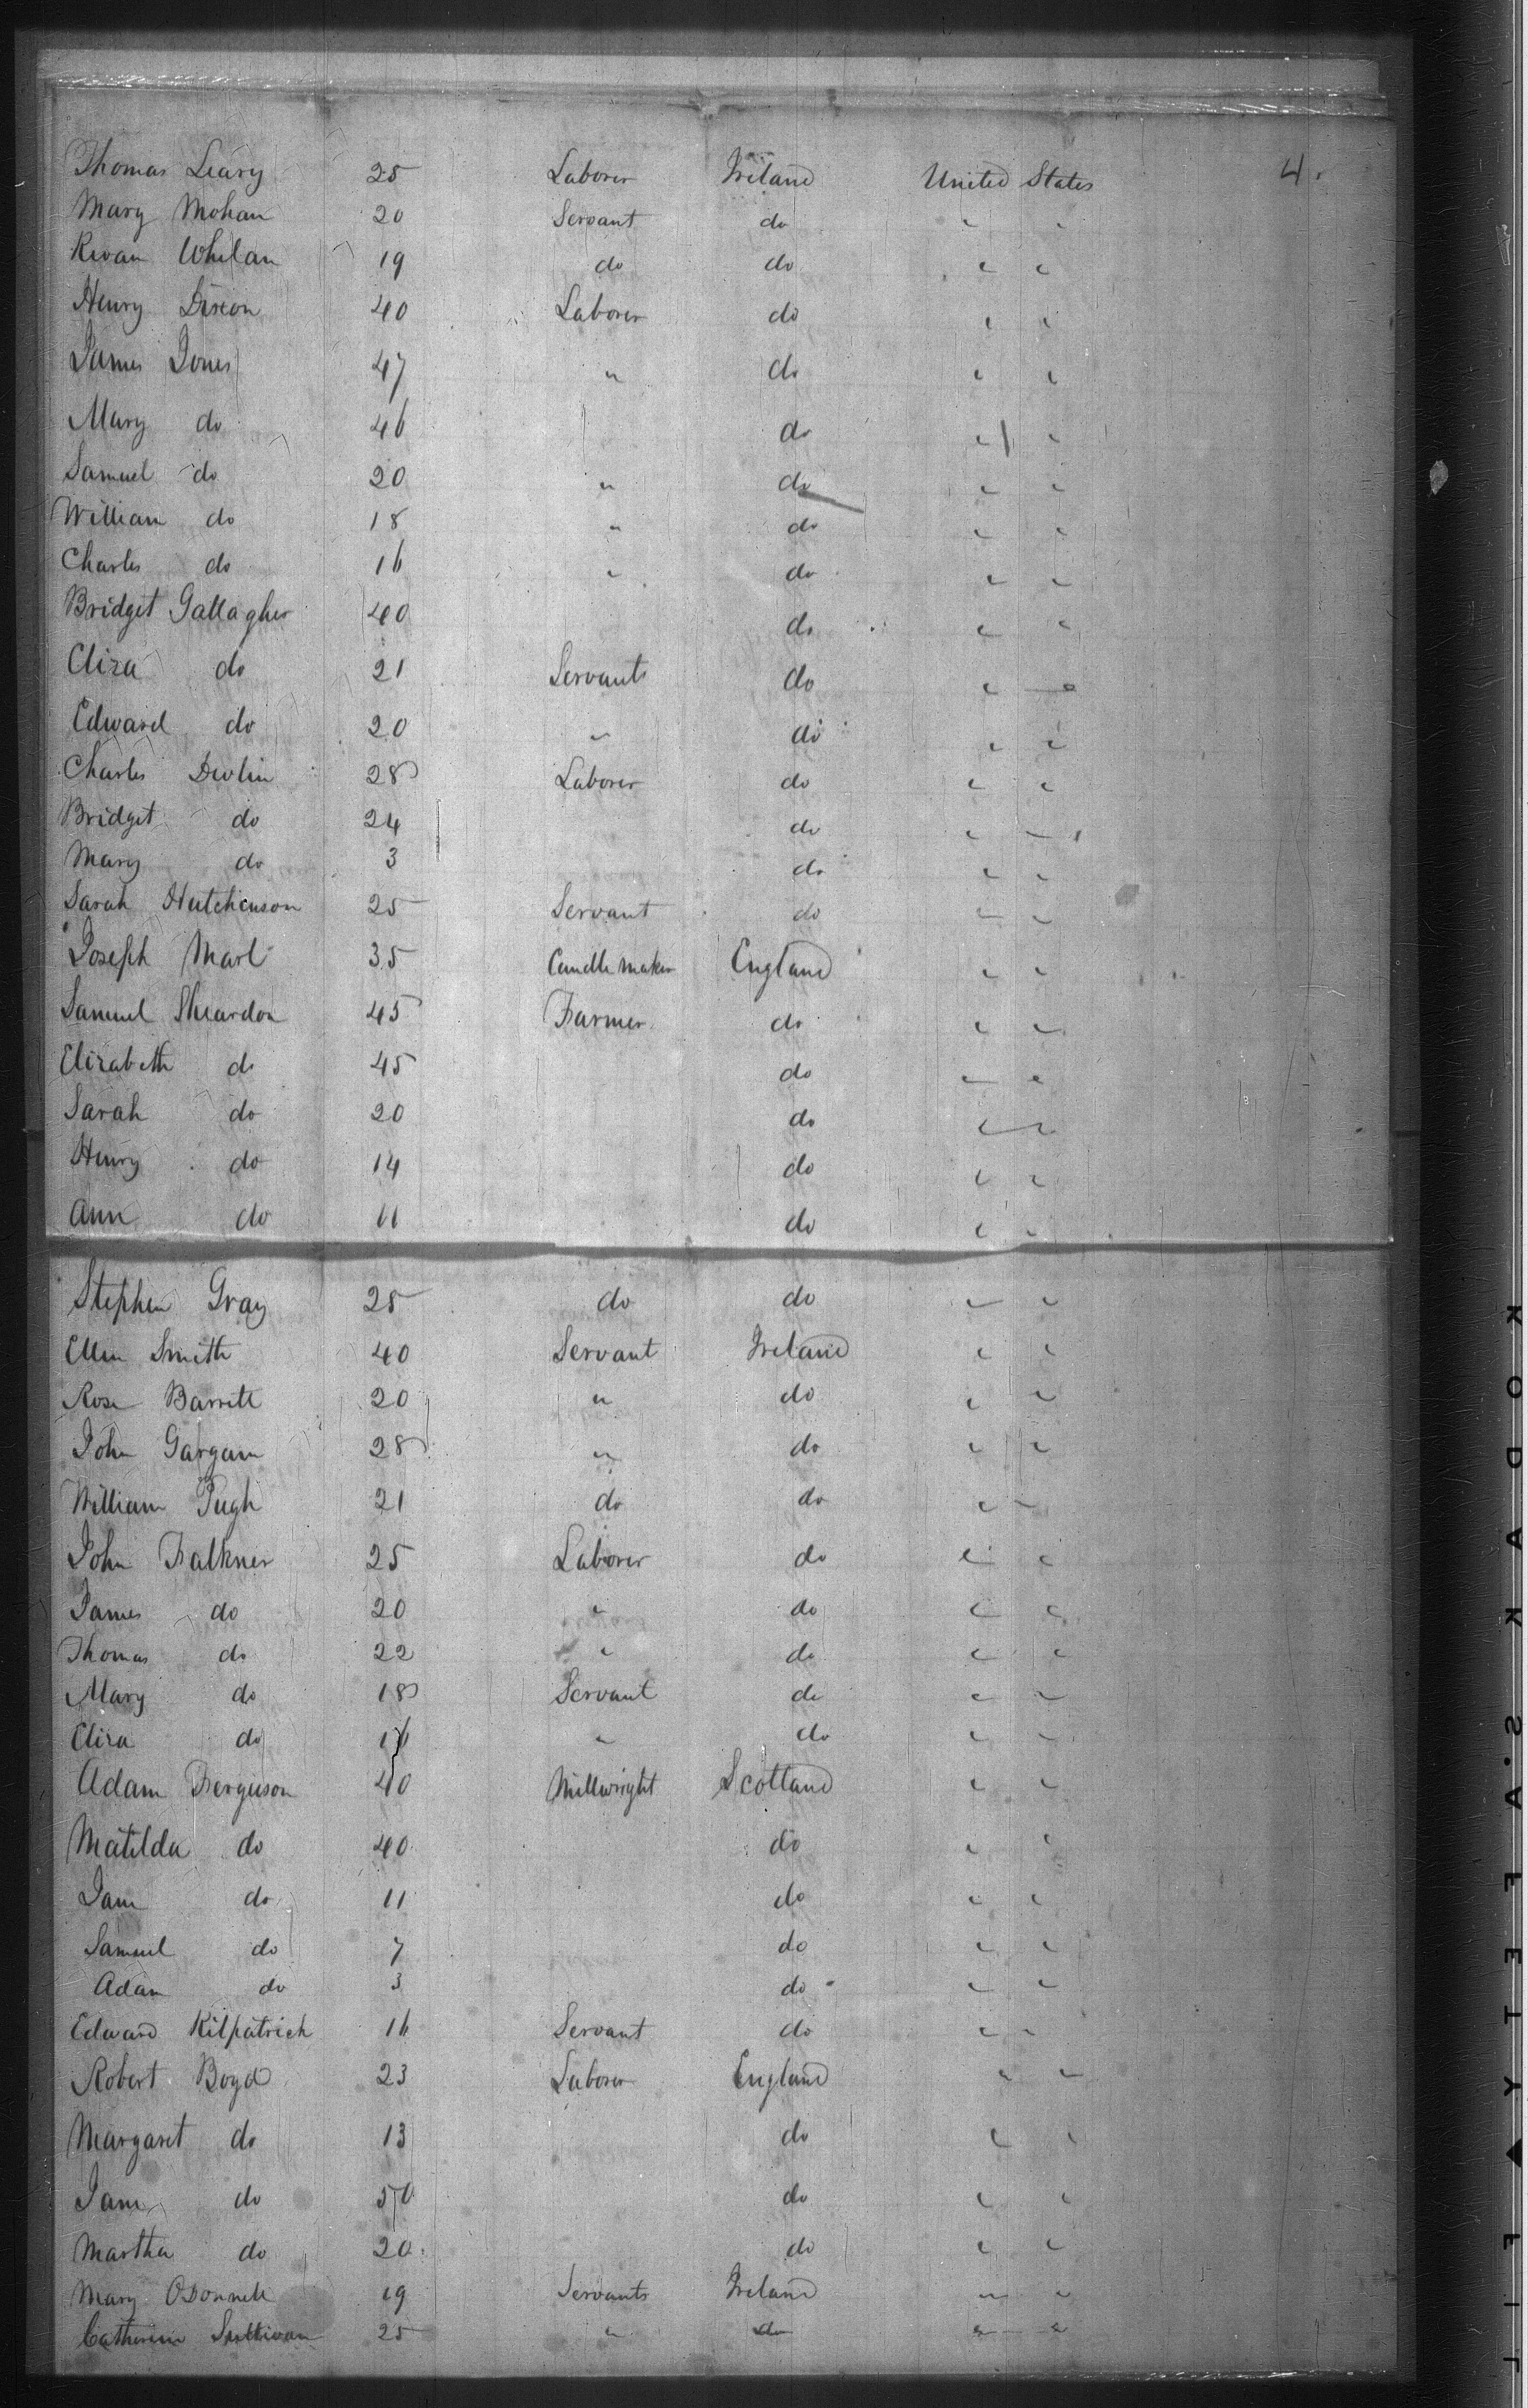 Thomas Leary 25 Laborer Ireland United States 4.
Mary Mohan 20 Servant do " "
Kivan Whelan 19 do do " "
Henry Dixon 40 Laborer do " "
James Jones 47 " do " "
Mary do 46 do " "
Samuel do 20 " do " "
William do 18 " do " "
Charles do 16 " do " "
Bridget Gallagher 40 do " "
Eliza do 21 Servants do " "
Edward do 20 " do " "
Charles Devlin 28 Laborer do " "
Bridget do 24 do " "
Mary do 3 do " "
Sarah Hutchenson 25 Servant do " "
Joseph Marl 35 Candle maker England " "
Samuel Sheardon 45 Farmer do " "
Elizabeth do 45 do " "
Sarah do 20 do " "
Henry do 14 do " "
Ann do 11 do " "
Stephen Gray 25 do do " "
Ellen Smith 40 Servant Ireland " "
Rose Barrett 20 " do " "
John Gargan 28 " do " "
William Pugh 21 do do " "
John Falkner 25 Laborer do " "
James do 20 " do " "
Thomas do 22 " do " "
Mary do 18 Servant do " "
Eliza do 16 " do " "
Adam Ferguson 40 Millwright Scotland " "
Matilda do 40 do " "
Jane do 11 do " "
Samuel do 7 do " "
Adam do 3 do " "
Edward Kilpatrick 16 Servant do " "
Robert Boyd 23 Laborer England " "
Margaret do 13 do " "
Jane do 50 do " "
Martha do 20 do " "
Mary ODonnell 19 Servants Ireland " "
Catherine Sullivan 25 " do " "
KODAK SAFETY FIL